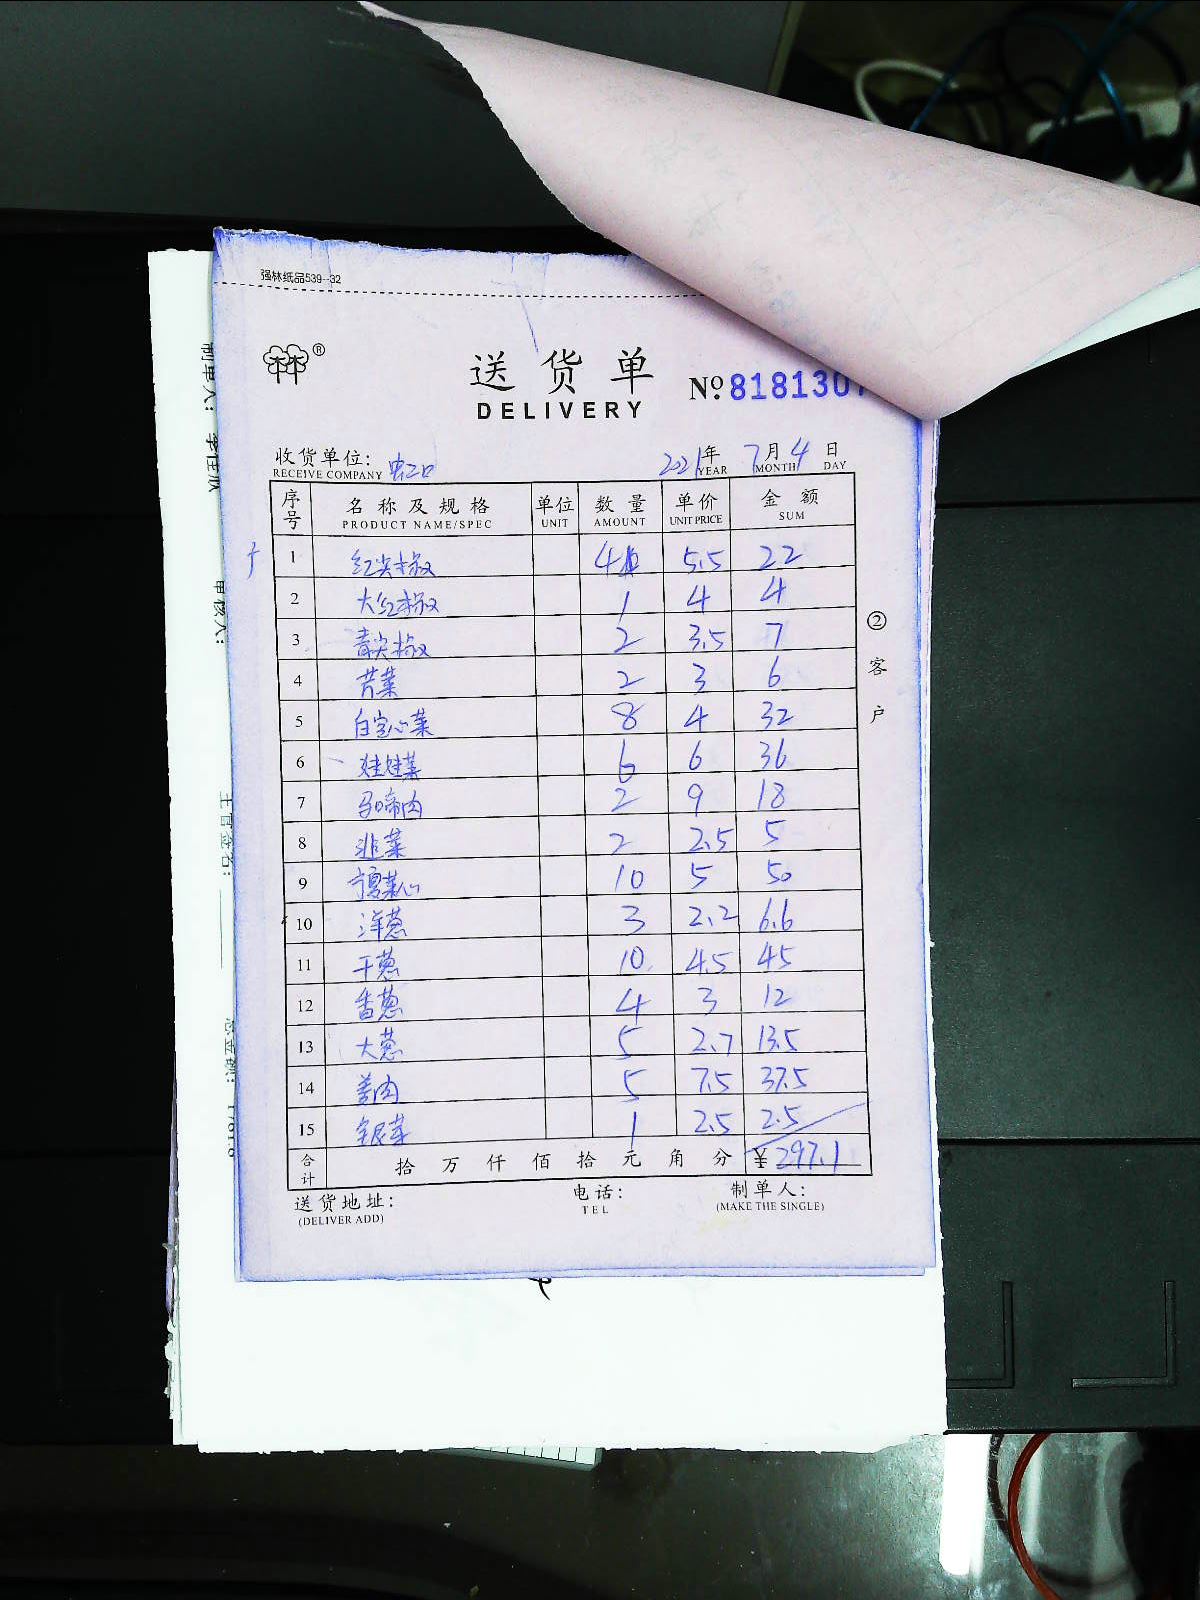 强林纸品539--32
®
送货单
DELIVERY
№:8181307
收货单位: 虹口 2021年 7月 4日
RECEIVE COMPANY YEAR MONTH DAY
序号 名称及规格 单位 数量 单价 金额
PRODUCT NAME/SPEC UNIT AMOUNT UNIT PRICE SUM
1 红尖椒 4 5.5 22
2 大红椒 1 4 4
3 青尖椒 2 3.5 7
4 芹菜 2 3 6
5 白空心菜 8 4 32
6 娃娃菜 6 6 36
7 马蹄肉 2 9 18
8 韭菜 2 2.5 5
9 菜心 10 5 50
10 洋葱 3 2.2 6.6
11 干葱 10 4.5 45
12 香葱 4 3 12
13 大葱 5 2.7 13.5
14 姜肉 5 7.5 37.5
15 银芽 1 2.5 2.5
合计 拾 万 仟 佰 拾 元 角 分 ¥297.1
送货地址: 电话: 制单人:
(DELIVER ADD) TEL (MAKE THE SINGLE)
②客户
制单人:
审核人: